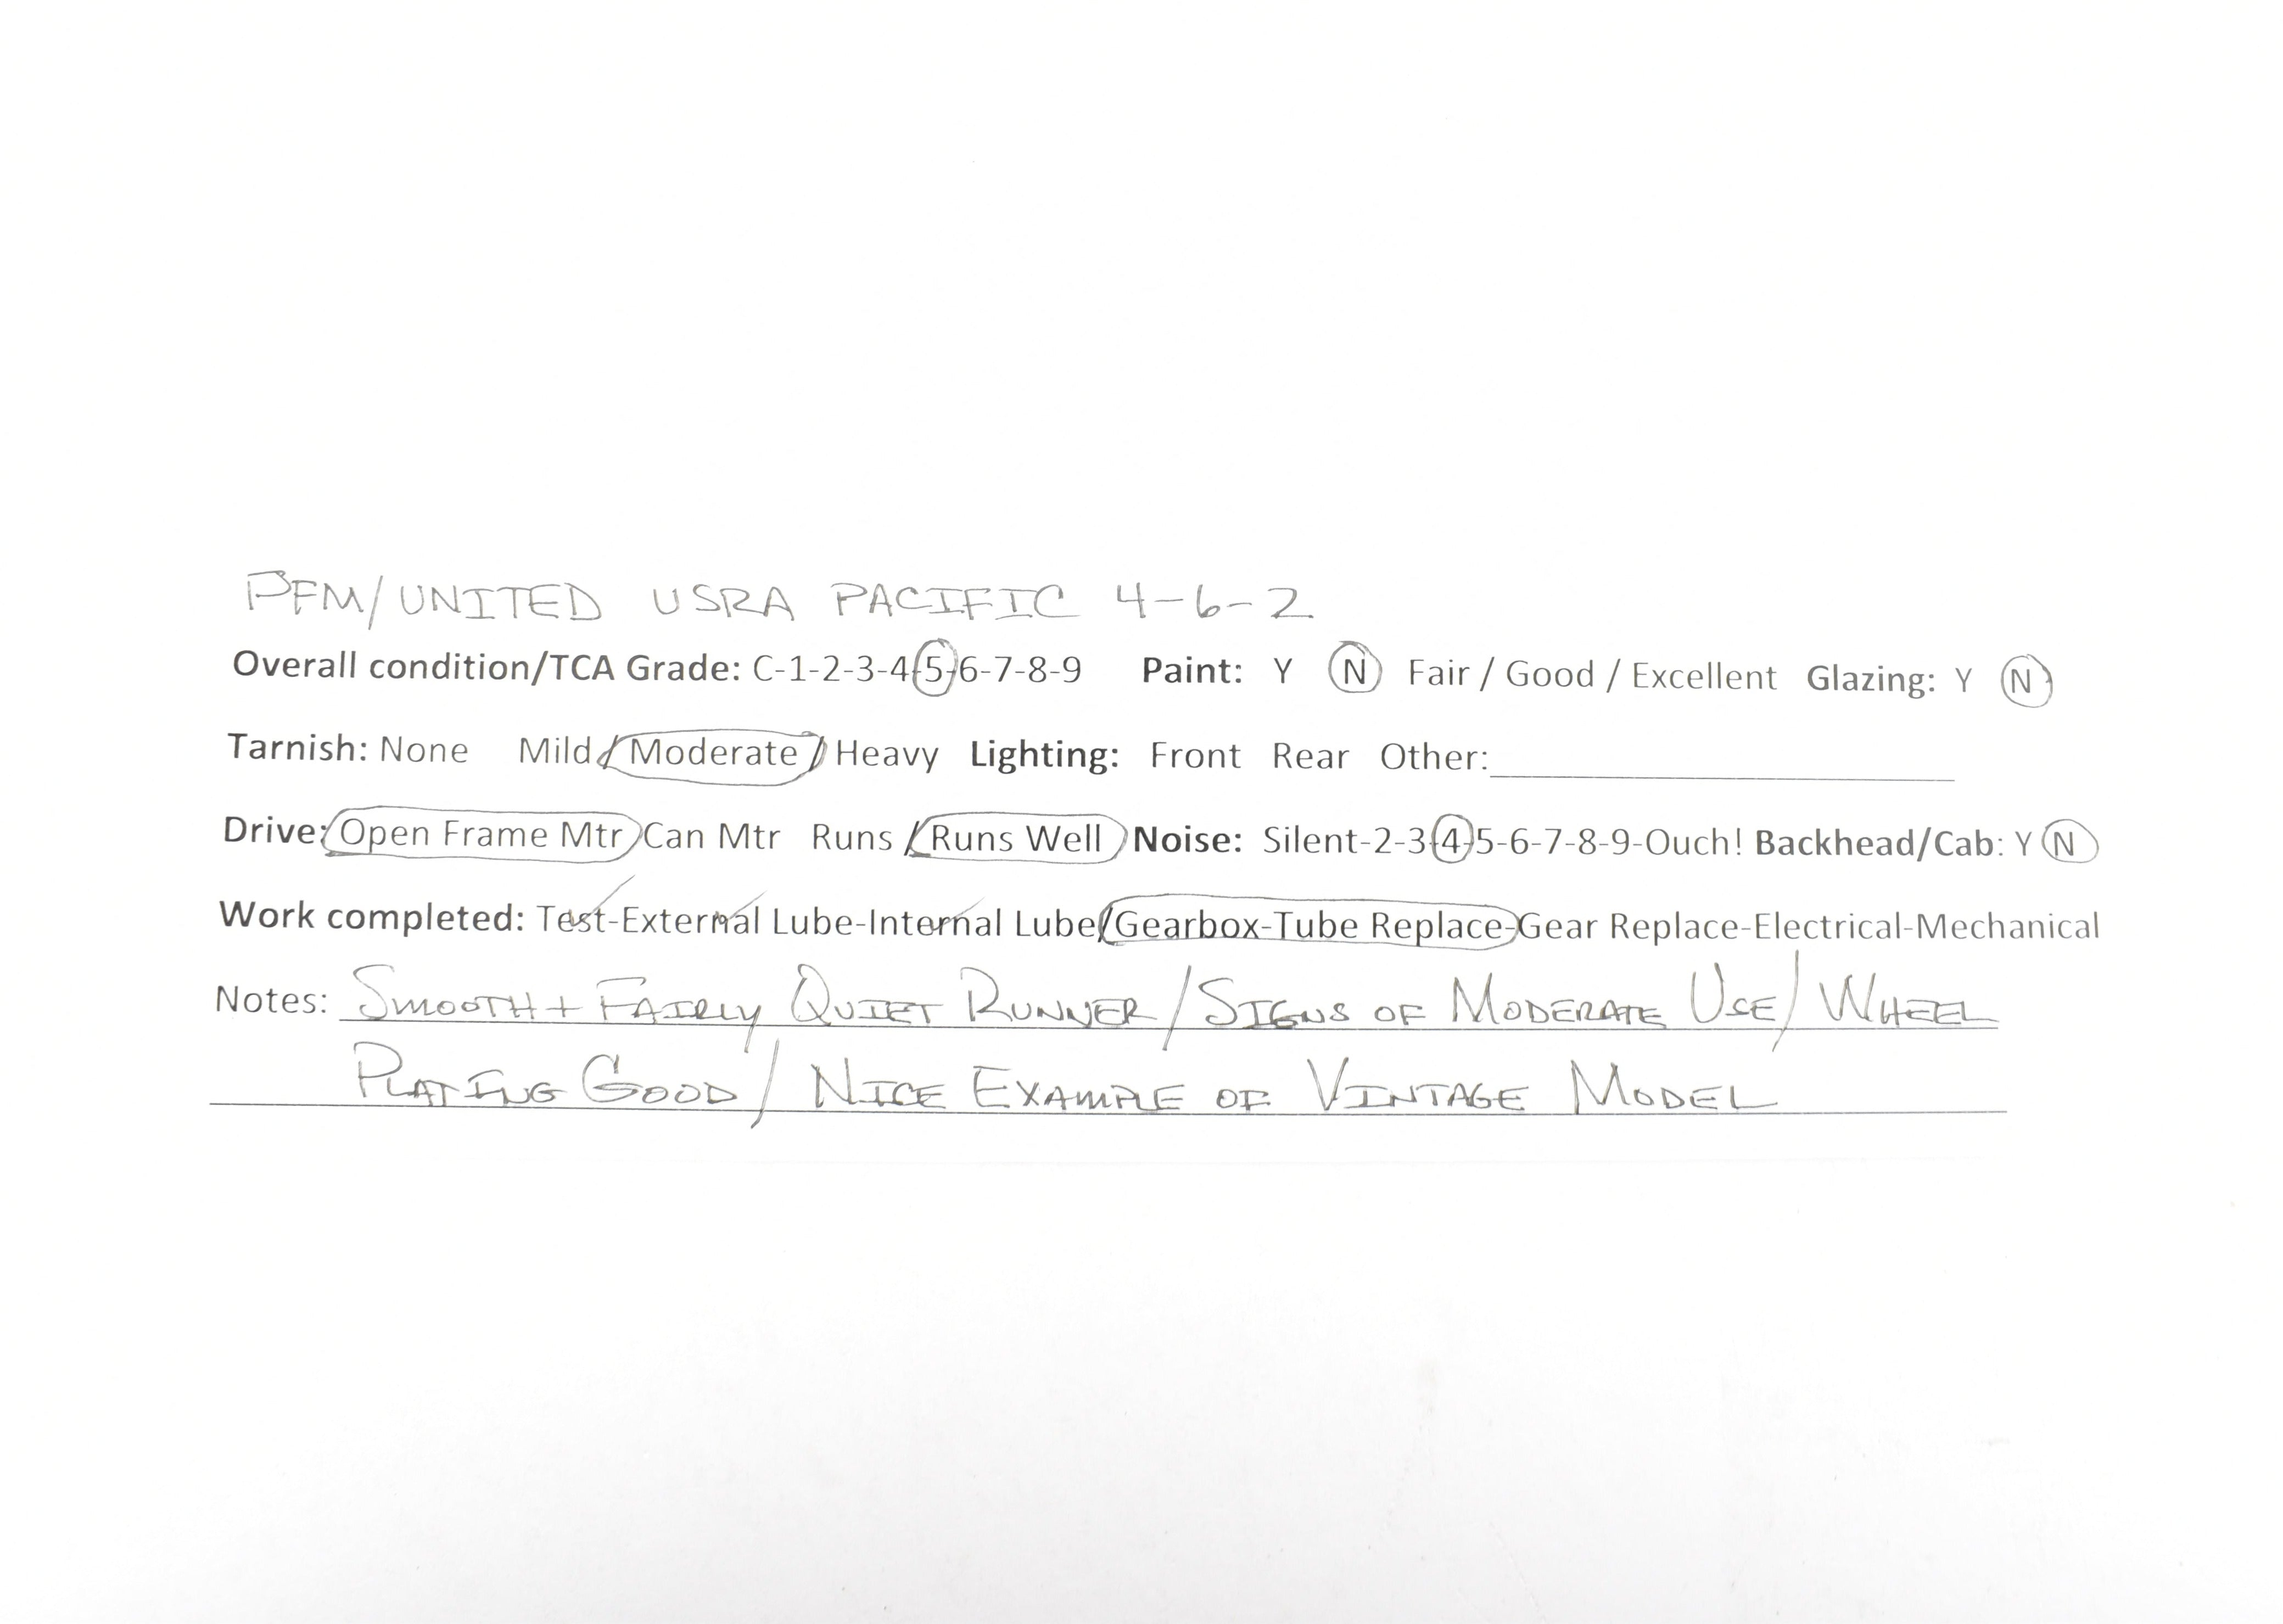 PFM/UNITED USRA PACIFIC 4-6-2
Overall condition/TCA Grade: C-1-2-3-4-5-6-7-8-9 Paint: Y N Fair / Good / Excellent Glazing: Y N
Tarnish: None Mild / Moderate / Heavy Lighting: Front Rear Other:
Drive: Open Frame Mtr Can Mtr Runs / Runs Well Noise: Silent-2-3-4-5-6-7-8-9-Ouch! Backhead/Cab: Y N
Work completed: Test-External Lube-Internal Lube/Gearbox-Tube Replace-Gear Replace-Electrical-Mechanical
Notes: SMOOTH + FAIRLY QUIET RUNNER / SIGNS OF MODERATE USE / WHEEL
PLATING GOOD / NICE EXAMPLE OF VINTAGE MODEL